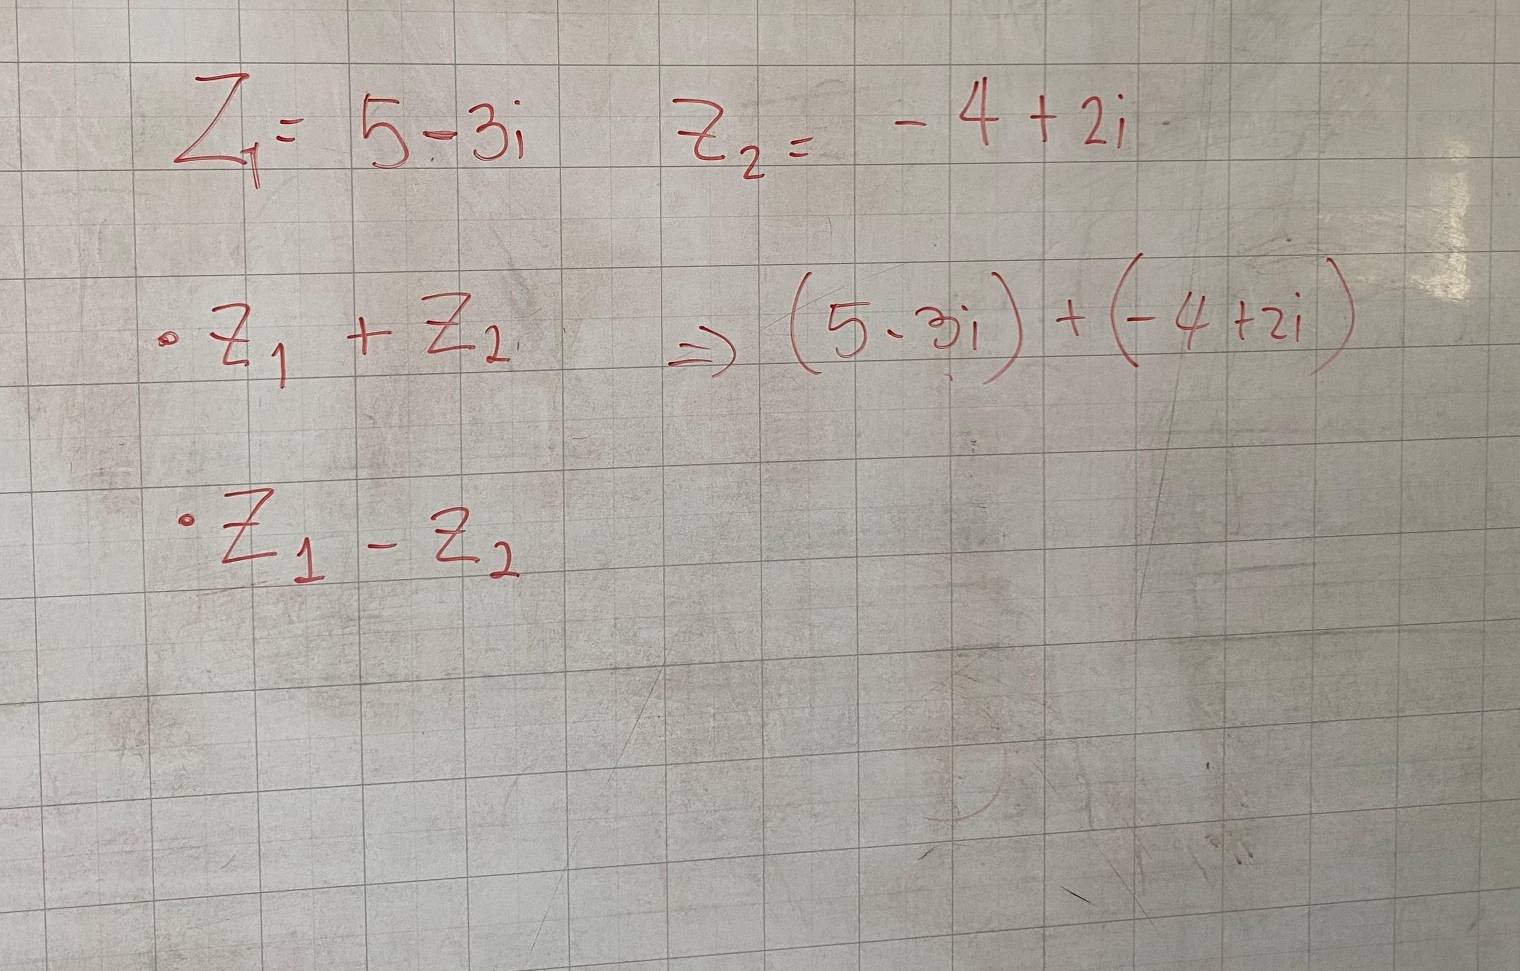 Z₁ = 5 - 3i Z₂ = - 4 + 2i
• Z₁ + Z₂ ⇒ (5 - 3i) + (- 4 + 2i)
• Z₁ - Z₂